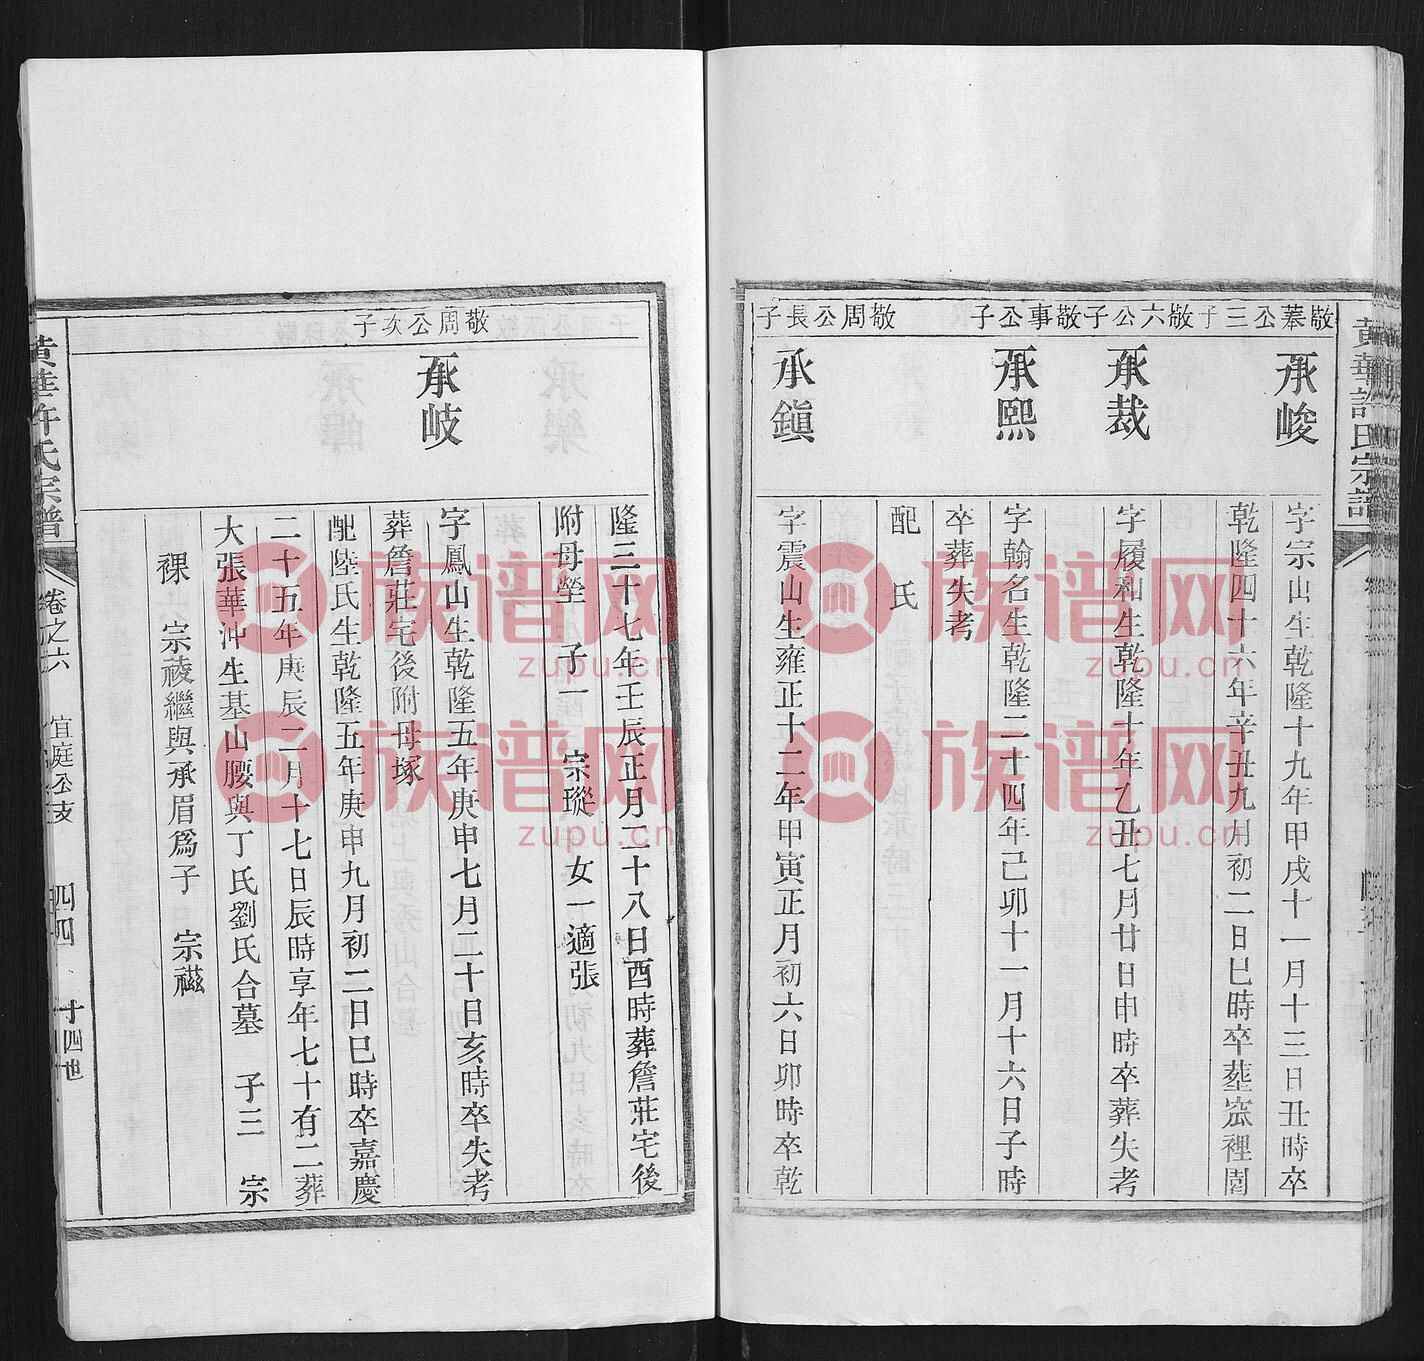 黃華許氏宗譜
敬蓁公三子
承峻
字宗山生乾隆十九年甲戌十一月十三日丑時卒
乾隆四十六年辛丑九月初二日巳時卒塟窊裡園
敬六公子
承裁
字履和生乾隆十年乙丑七月廿日申時卒葬失考
敬事公子
承熙
字翰名生乾隆二十四年己卯十一月十六日子時
卒葬失考
配 氏
敬周公長子
承鎮
字震山生雍正十二年甲寅正月初六日卯時卒乾
隆三十七年壬辰正月二十八日酉時葬詹莊宅後
附母塋 子一 宗瑽 女一適張
敬周公次子
承岐
字鳳山生乾隆五年庚申七月二十日亥時卒失考
葬詹莊宅後附母塚
配陸氏生乾隆五年庚申九月初二日巳時卒嘉慶
二十五年庚辰二月十七日辰時享年七十有二葬
大張華沖生基山腰與丁氏劉氏合墓 子三 宗
裸 宗祾繼與承眉爲子 宗禌
黃華許氏宗譜
卷之六
宜庭公支
四四
十四世
族谱网
zupu.cn
族谱网
zupu.cn
族谱网
zupu.cn
族谱网
zupu.cn